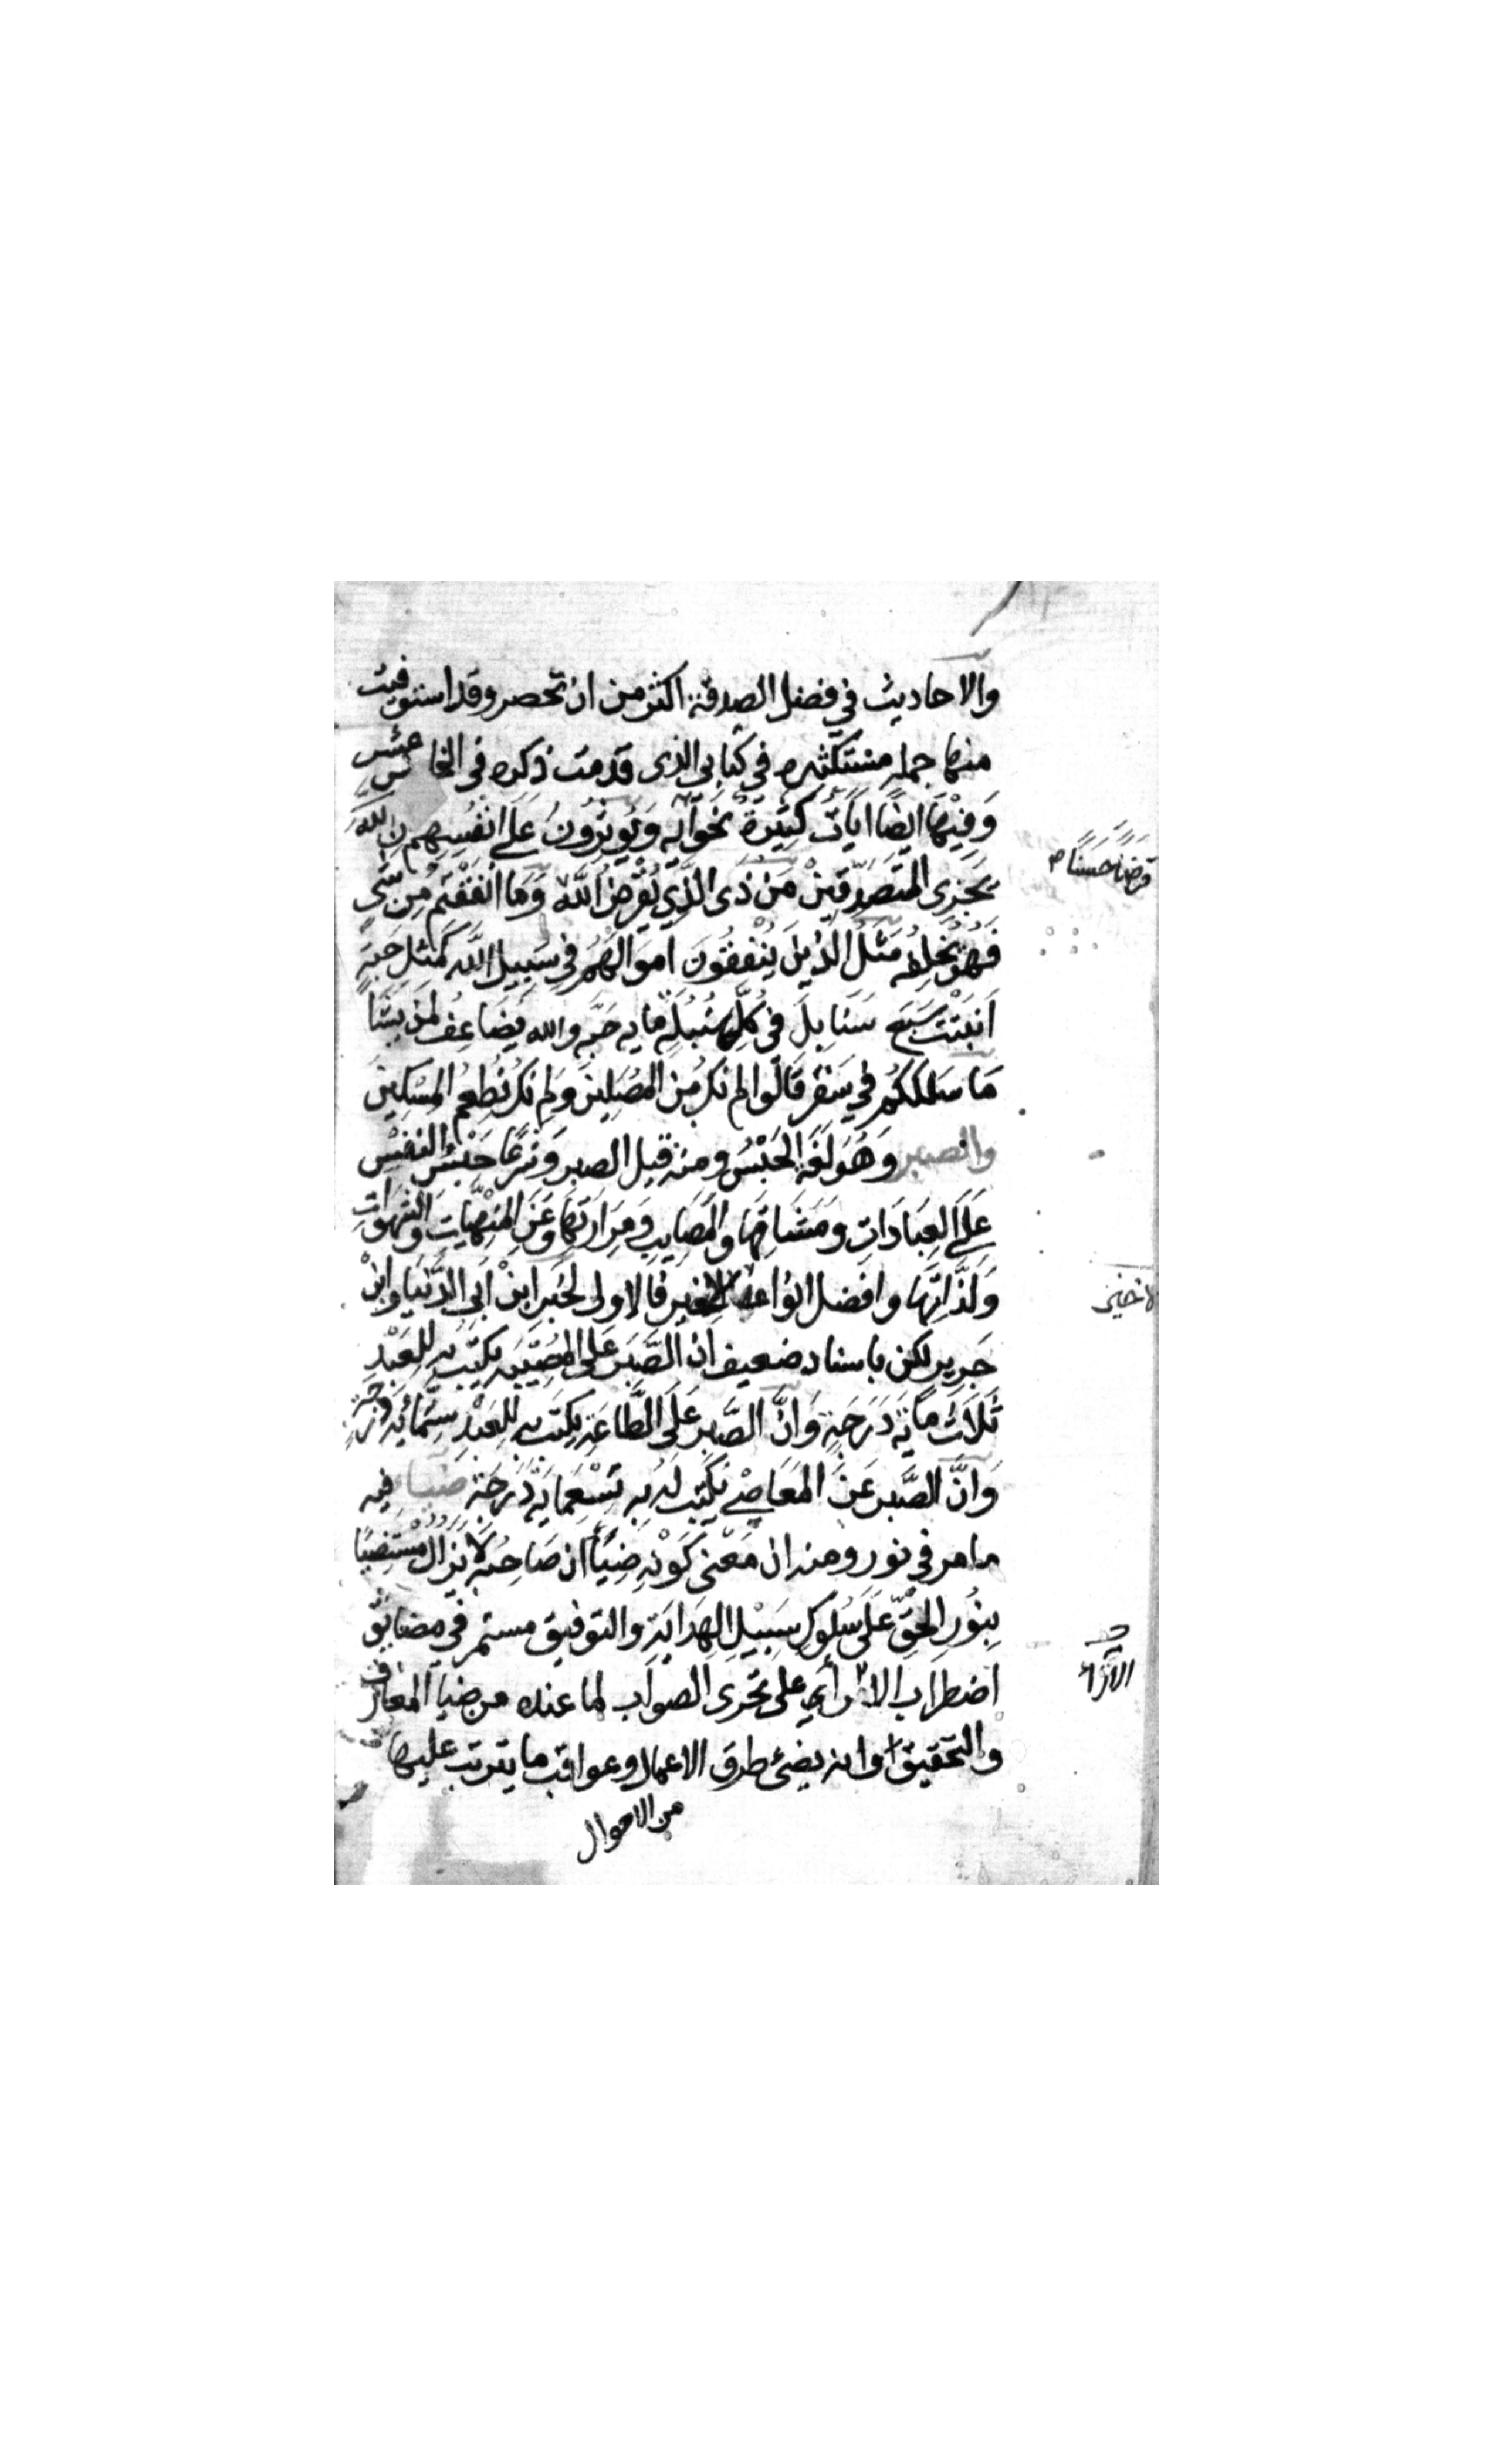 والاحاديث في فضل الصدقة اكثر من ان تحصر وقد استوفيت
منها جملة مستكثره في كتابي الذى قدمت ذكره في الخامس عشر
وَفِيْهَا ايضًا ايَاتٌ كَثِيرَةٌ نحو آية وَيُوثِرُونَ عَلَى انْفُسِهِمْ ان اللَّهَ
يَجْزِى المتَصَدِّقِينْ مَنْ ذَى الَّذِي يُقْرِضُ اللَّهَ وَمَا انْفَقْتُمْ مِنْ شَىٍ
قرضًا حَسَنًا
فَهُوَ يُخْلِفُه مَثَلُ الَّذِينَ يُنْفِقُونَ اموَالَهُمْ فِي سَبِيلِ اللَّهِ كَمَثَلِ حَبَةٍ
اَنبَتَتْ سَبْعَ سَنَابِلَ فِي كُلِّ سُنْبُلَةٍ مايه حَبَّةٍ والله يُضَاعِفُ لمَنْ يَشَا
مَا سَلَكَكُمْ فِي سَقَرَ قَالُوا لم نَكُ مِنَ المُصَلِينَ وَلم نَكُ نُطْعِمُ المِسْكِينَ
والصبر وَهُوَ لُغَةً الحَبْسُ ومنه قيل الصبر وَشَرْعًا حَبْسُ النَفْسِ
عَلَى العِبَادَاتِ وَمَشَاقِّهَا وَالمَصَايبِ وَمَرَارَتِهَا وَعَنِ المَنْهِيَّاتِ وَالشَّهَوَاتِ
وَلَذَّاتِهَا وافضل انواعه فالاولى لخَبَرِ ابنْ اَبى الدُّنْيَا وابنْ
جَرِيرٍ لكن باسناد ضعيف ان الصَّبْرَ عَلى المُصِيْبَةِ يُكْتَبُ بِهِ لِلعَبْدِ
ثَلَاثَ مِايَةِ دَرَجَةٍ وَانَّ الصَّبْرَ عَلَى الطَّاعَةِ يُكْتَبُ به لِلعَبْدِ سِتَّمِائَةِ دَرَجَةٍ
وَانَّ الصَّبْرَ عَنَ المَعَاصِي يُكْتَبُ لَهُ بِهِ تِسْعَمِايَةِ دَرَجَةٍ ضياء فيه
ما مر في نور ومنه ان مَعْنى كَوْنِهِ ضِيَاءً ان صَاحِبَهُ لَا يَزَالُ مُسْتَضِيًا
بِنُورِ الحَقِّ عَلَى سُلُوكِ سَبِيْلِ الهِدَايَةِ والتوفيق مستمر في مضايق
اضطراب الاراى على تحرى الصواب لما عنده من ضيا المعارف
الآراء
والتحقيق اوانه يضئ طرق الاعمال وعواقب ما يترتب عليها
من الاحوال